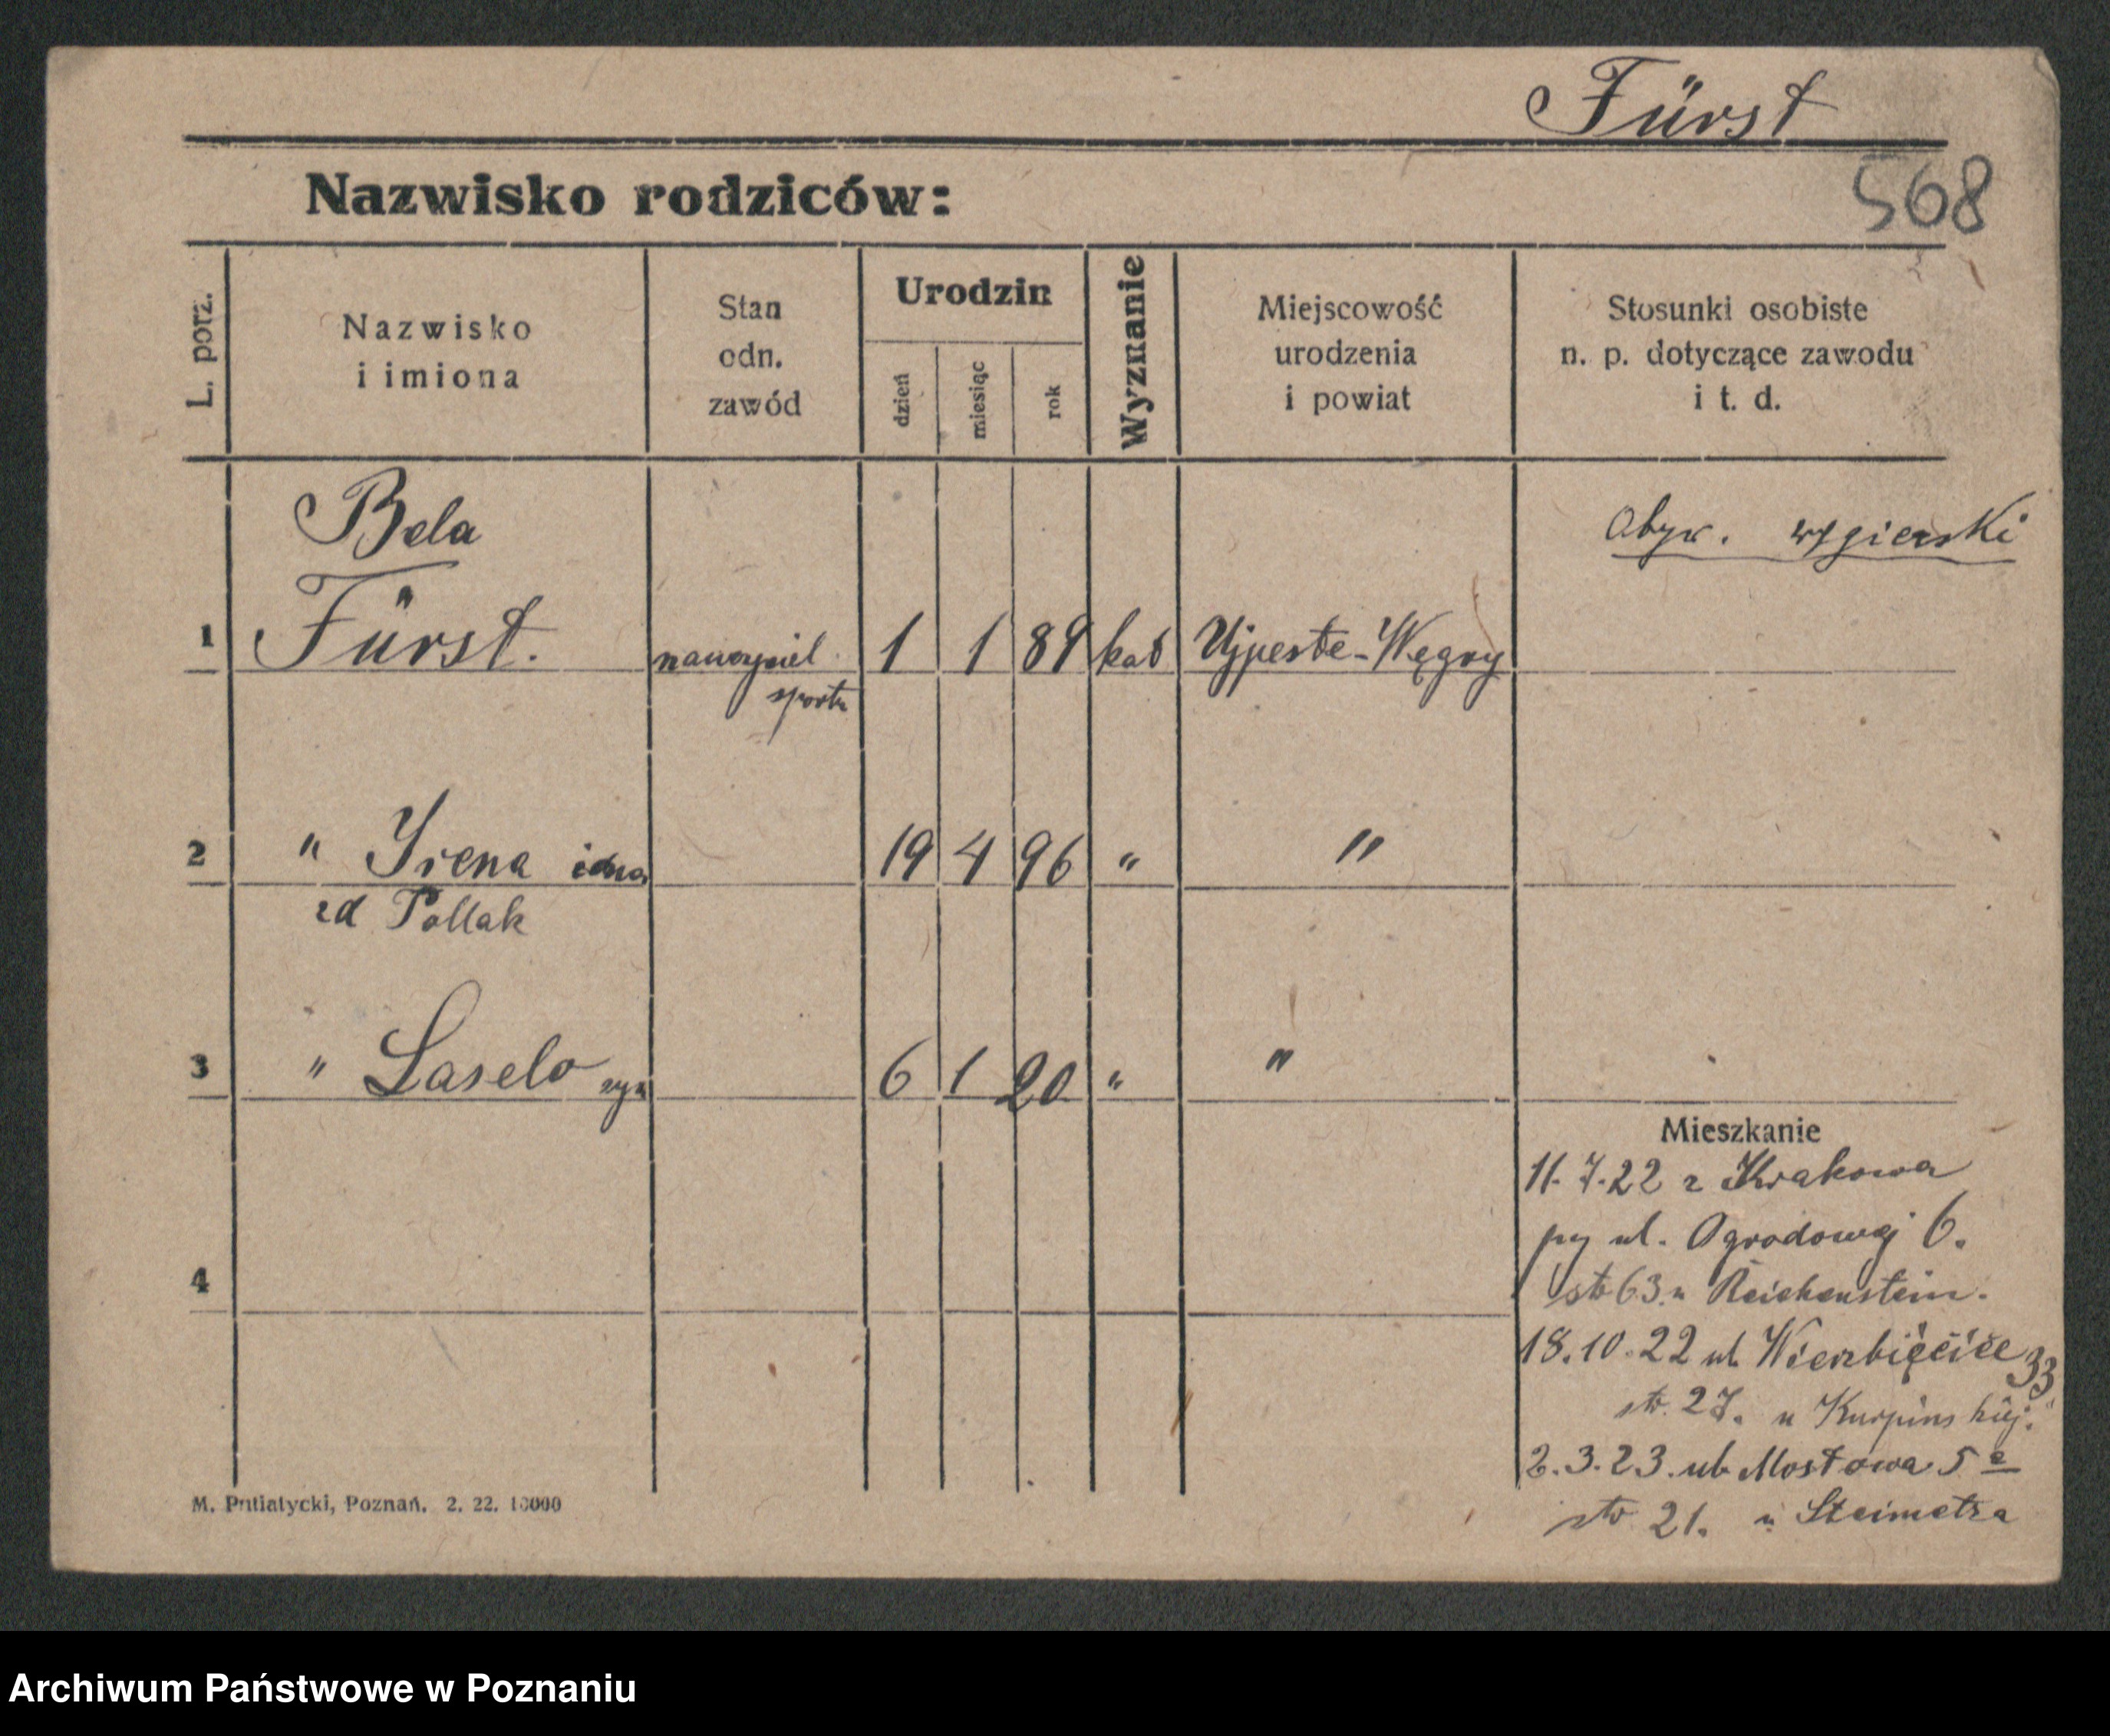 Fürst
Nazwisko rodziców:
568
L. porz.
Nazwisko
i imiona
Stan
odn.
zawód
Urodzin
dzień
miesiąc
rok
Wyznanie
Miejscowość
urodzenia
i powiat
Stosunki osobiste
n. p. dotyczące zawodu
i t. d.
Bela
Obyw. węgierski
1 Fürst. nauczyciel 1 1 89 kat Ujpeste-Węgry
sportu
2 " Irena żona 19 4 96 " "
zd Pollak
3 " Laselo syn 6 1 20 " "
Mieszkanie
11.7.22 z Krakowa
przy ul. Ogrodowej 6.
str 63 u Reichenstein.
4
18.10.22 ul Wierzbięcice 33
str. 27. u Kurpińskiej.
2.3.23. ul. Mostowa 5 a
str 21. u Steimetza
M. Putiatycki, Poznań. 2. 22. 10000
Archiwum Państwowe w Poznaniu